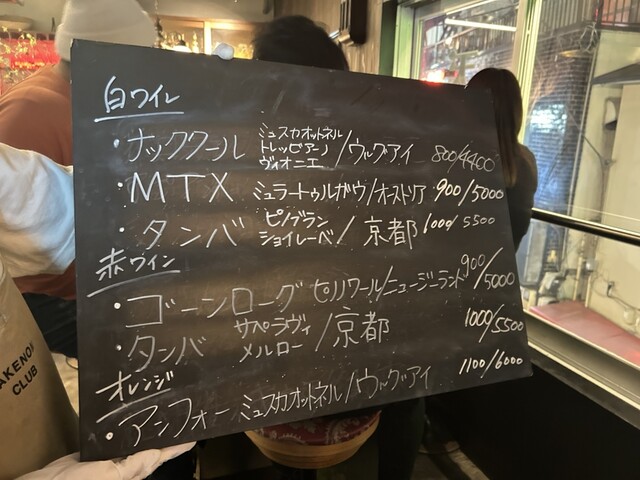 白ワイン
・ナッククール ミュスカオットネル トレッビアーノ ヴィオニエ/ウルグアイ 800/4400
・MTX ミュラートゥルガウ/オーストリア 900/5000
・タンバ ピノブラン ショイレーベ/京都 1000/5500
赤ワイン
・ゴーンローグ ピノノワール/ニュージーランド 900/5000
・タンバ サペラヴィ メルロー/京都 1000/5500
オレンジ
・アンフォー ミュスカオットネル/ウルグアイ 1100/6000
AKENO
CLUB